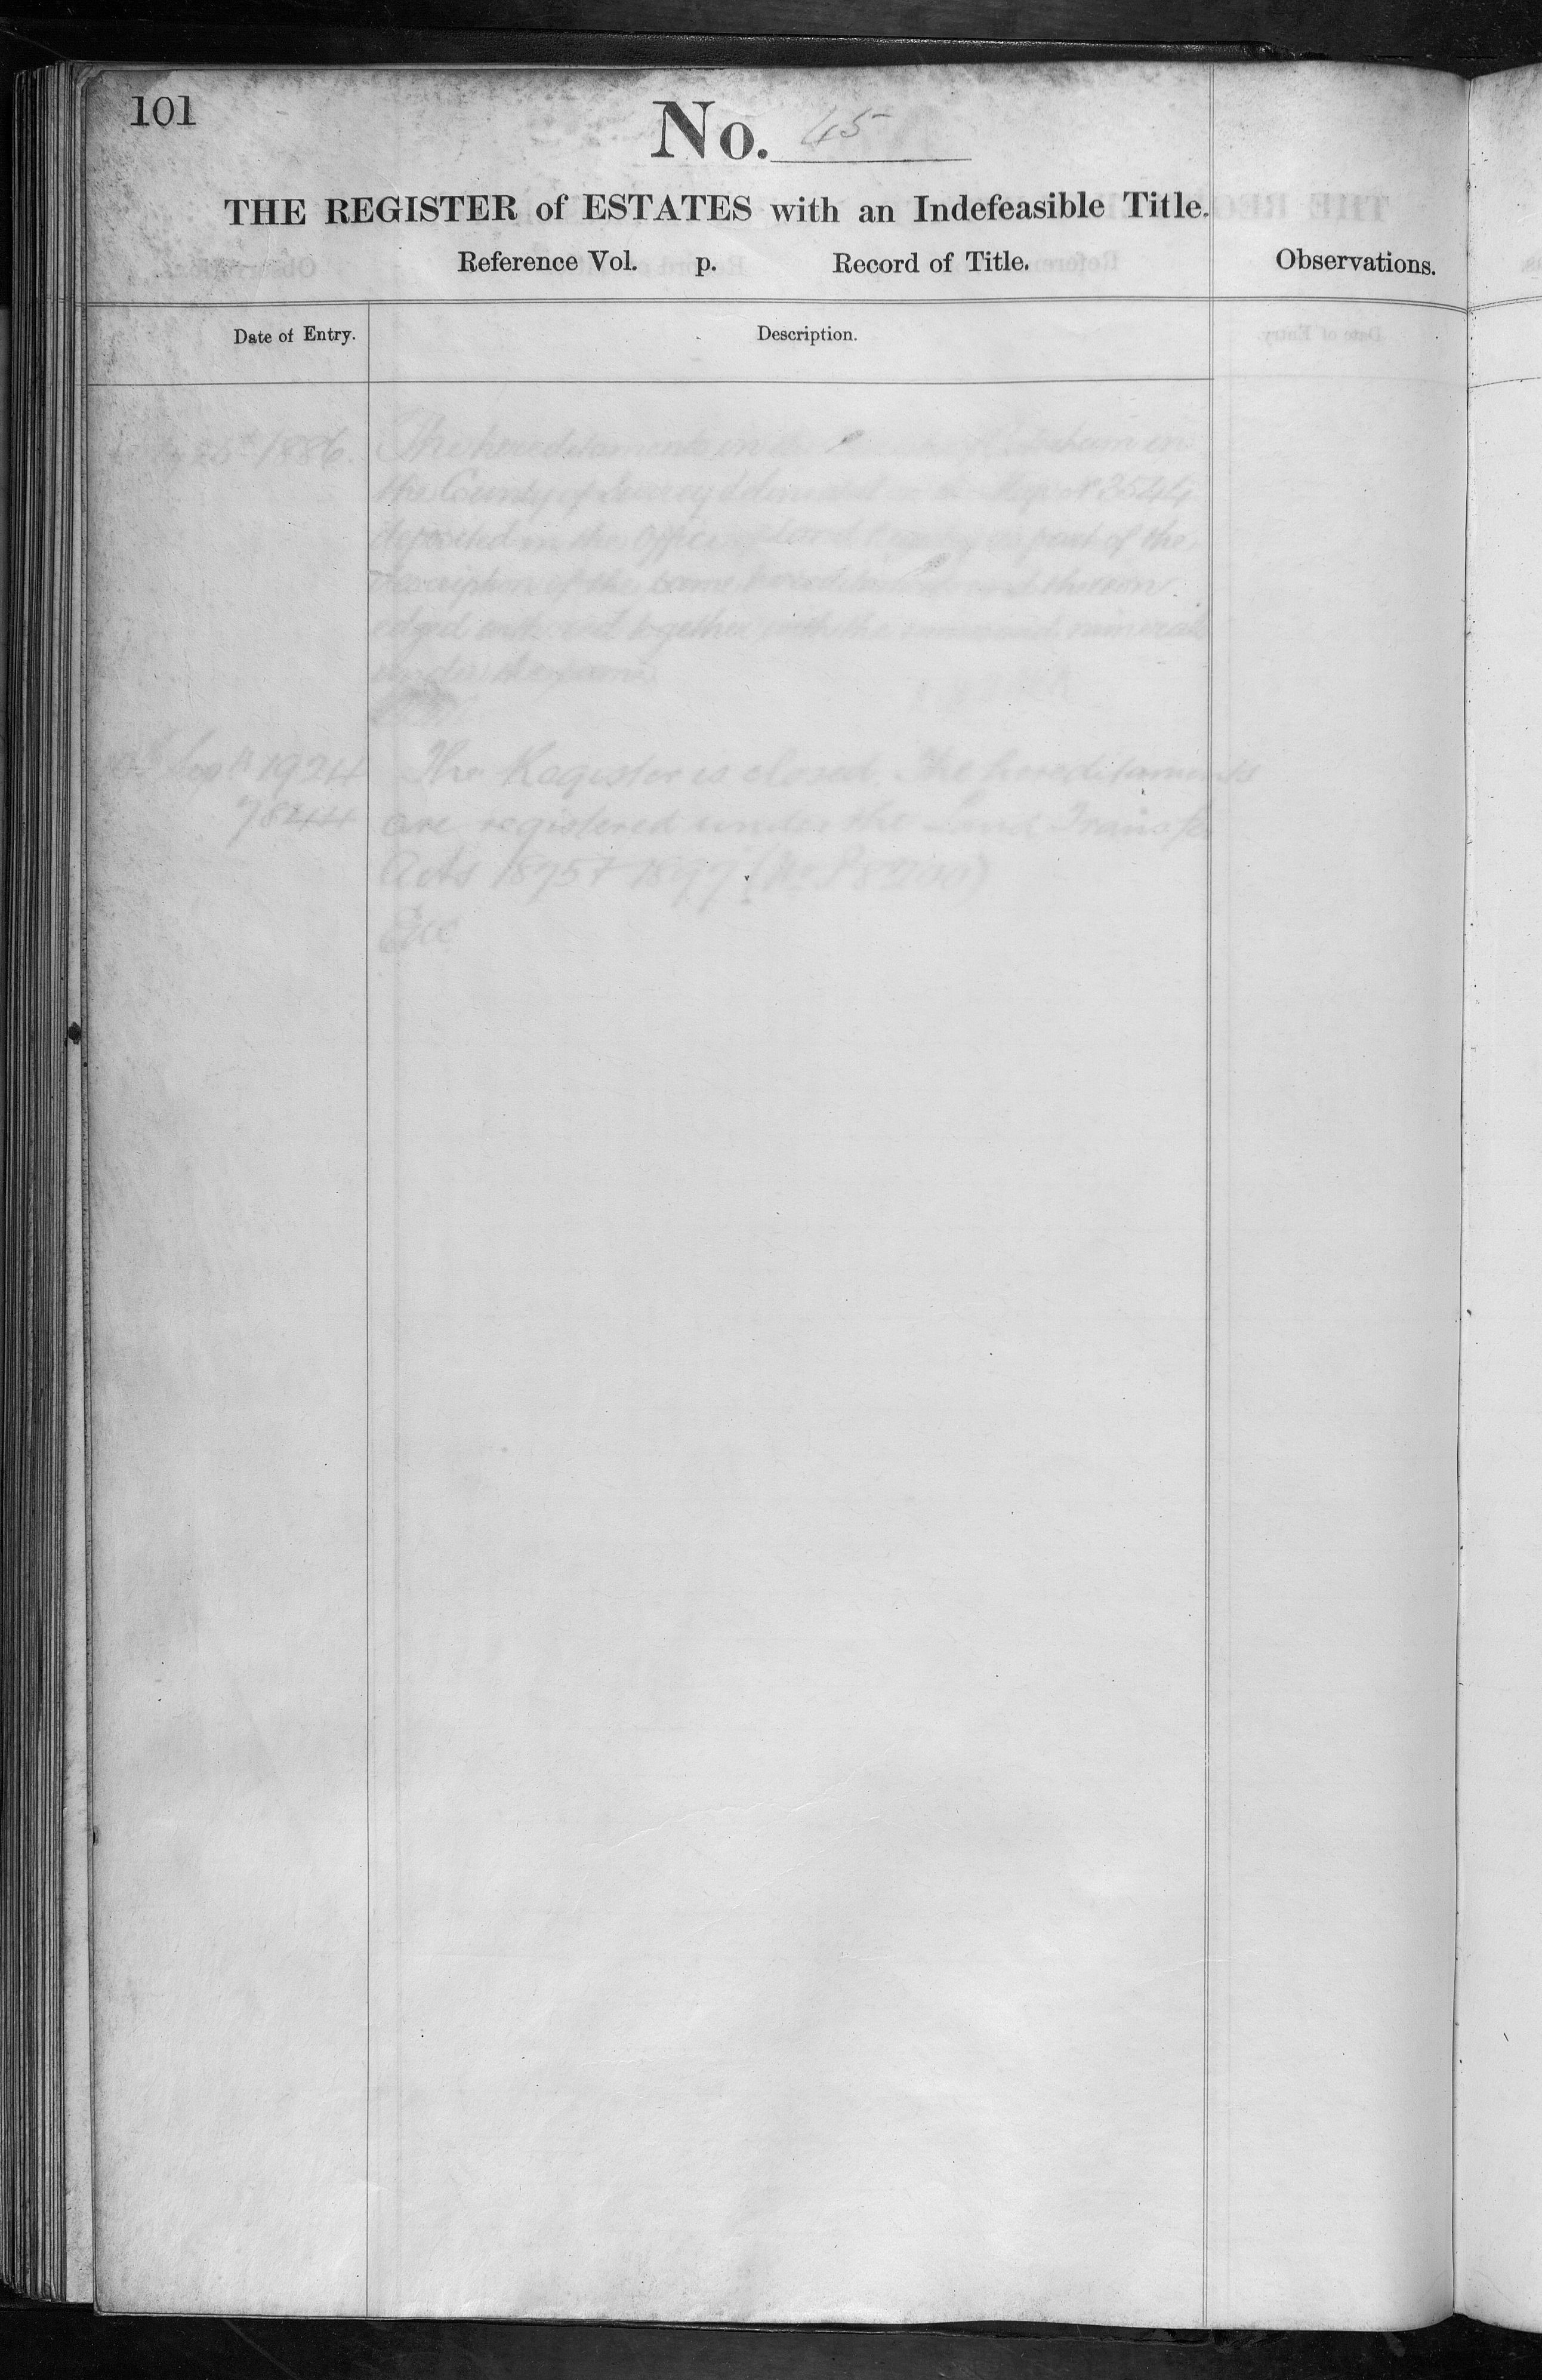 101
No. 45
THE REGISTER of ESTATES with an Indefeasible Title.
Reference Vol. p. Record of Title.
Observations.
Date of Entry.
Description.
1886.
The hereditaments in the
the County of Surrey on Map No 3544
deposited in the Office Land Registry as part of the
description of the same hereditaments and thereon
edged with red together with the mines and minerals
under the same
1924
7844
The Register is closed. The hereditaments
are registered under the Land Transfer
Acts 1875 & 1897 (No P8200)